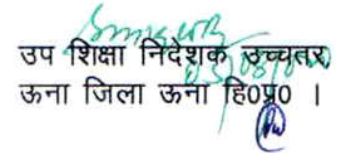 उप शिक्षा निदेशक उच्चतर,
ऊना जिला ऊना हि0प्र0 ।